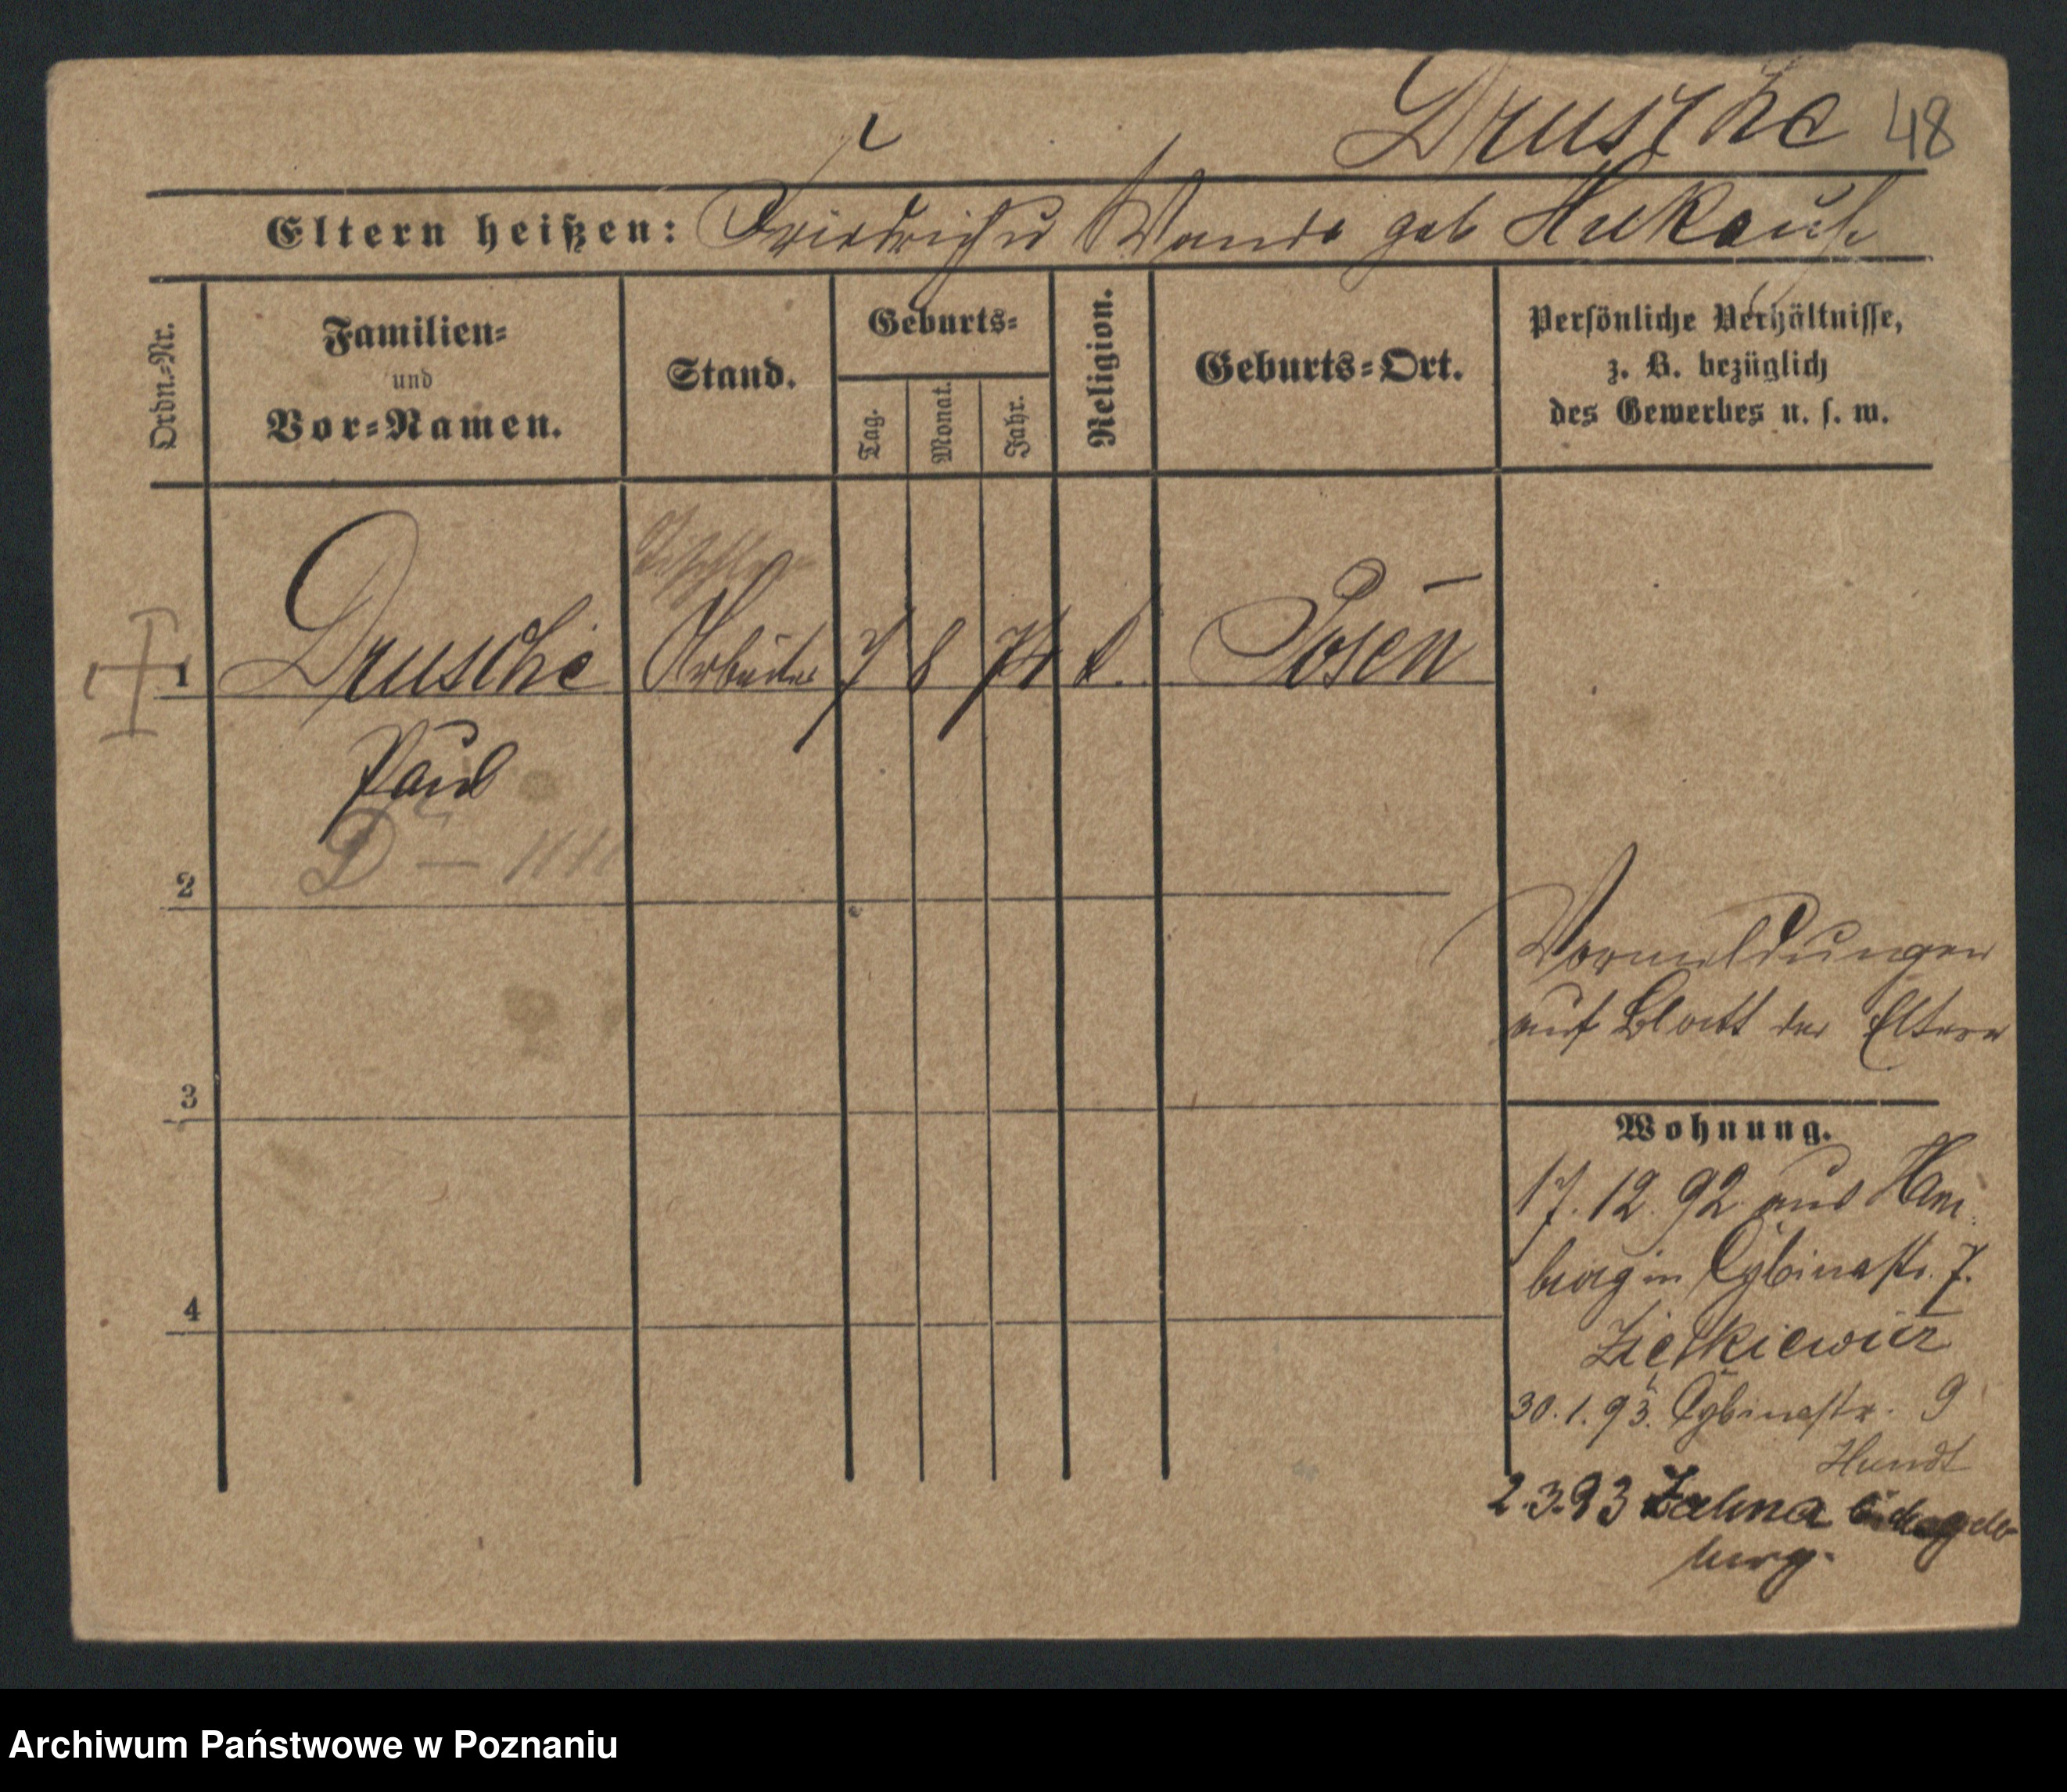 Drusche 48
Eltern heißen: Friedrich u Wanda geb
Ordn.-Nr.
Familien-
und
Vor-Namen.
Stand.
Geburts-
Tag.
Monat.
Jahr.
Religion.
Geburts-Ort.
Persönliche Verhältnisse,
z. B. bezüglich
des Gewerbes u. s. w.
1 Drusche Arbeiter 7 8 74 k. Posen
Paul
D —
2
Vormeldungen
auf Blatt der Eltern
3
Wohnung.
17.12.92 aus Ham-
burg in Cybinastr. 7.
4
Zietkiewicz
30.1.93. Cybinastr. 9
Hundt
2.3.93 Zahna
burg.
Archiwum Państwowe w Poznaniu